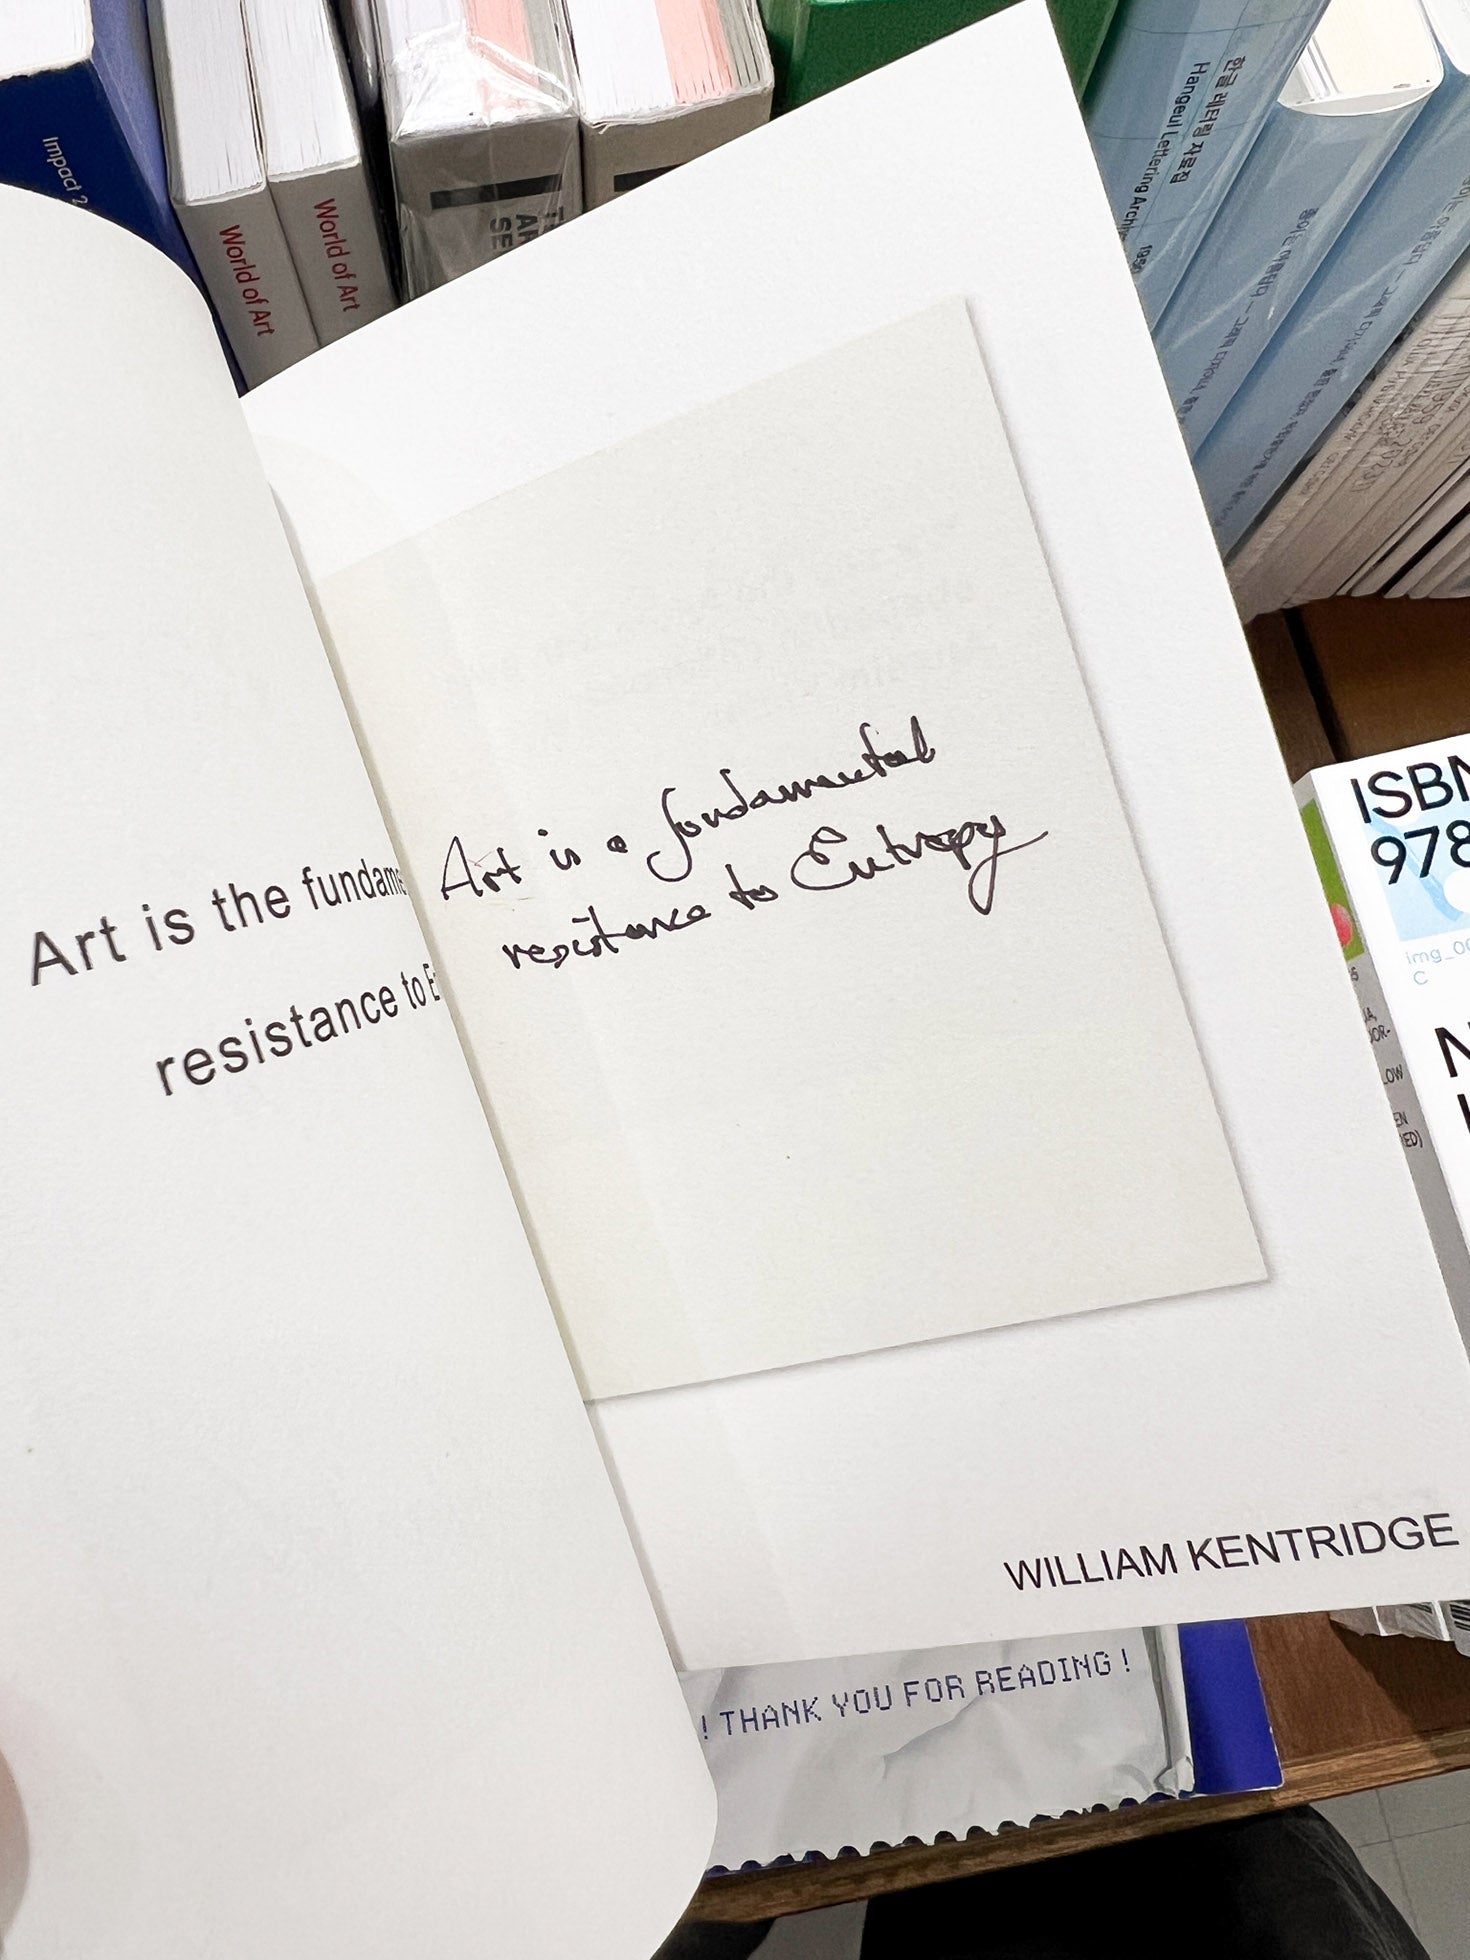 Impact 2
World of Art
World of Art
한글 레터링 자료집
Hangeul Lettering Archive 1950
Art is the fundame
resistance to E
Art is a fundamental
resistance to Entropy
WILLIAM KENTRIDGE
! THANK YOU FOR READING !
ISBN
978
img_00
C
LOW